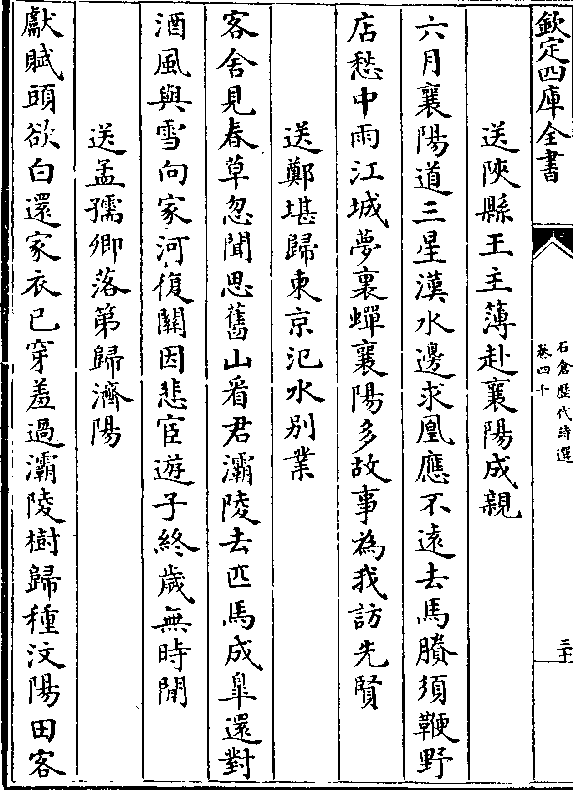 欽定四庫全書
石倉歷代詩選
卷四十
三十
送陝縣王主簿赴襄陽成親
六月襄陽道三星漢水邊求凰應不遠去馬賸須鞭野
店愁中雨江城夢裏蟬襄陽多故事為我訪先賢
送鄭堪歸東京汜水別業
客舍見春草忽聞思舊山看君灞陵去匹馬成臯還對
酒風與雪向家河復關因悲宦遊子終歲無時閒
送孟孺卿落第歸濟陽
獻賦頭欲白還家衣已穿羞過灞陵樹歸種汶陽田客